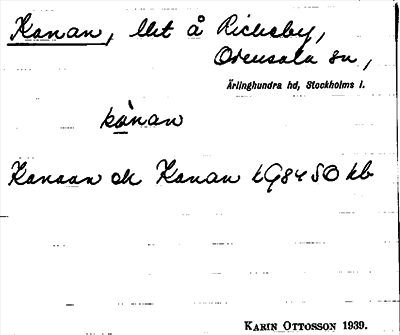 Kanan, lht å Rickeby,
Odensala sn,
Ärlinghundra hd, Stockholms l.
kànan
Kanaan ok Kanan
KARIN OTTOSSON 1939.